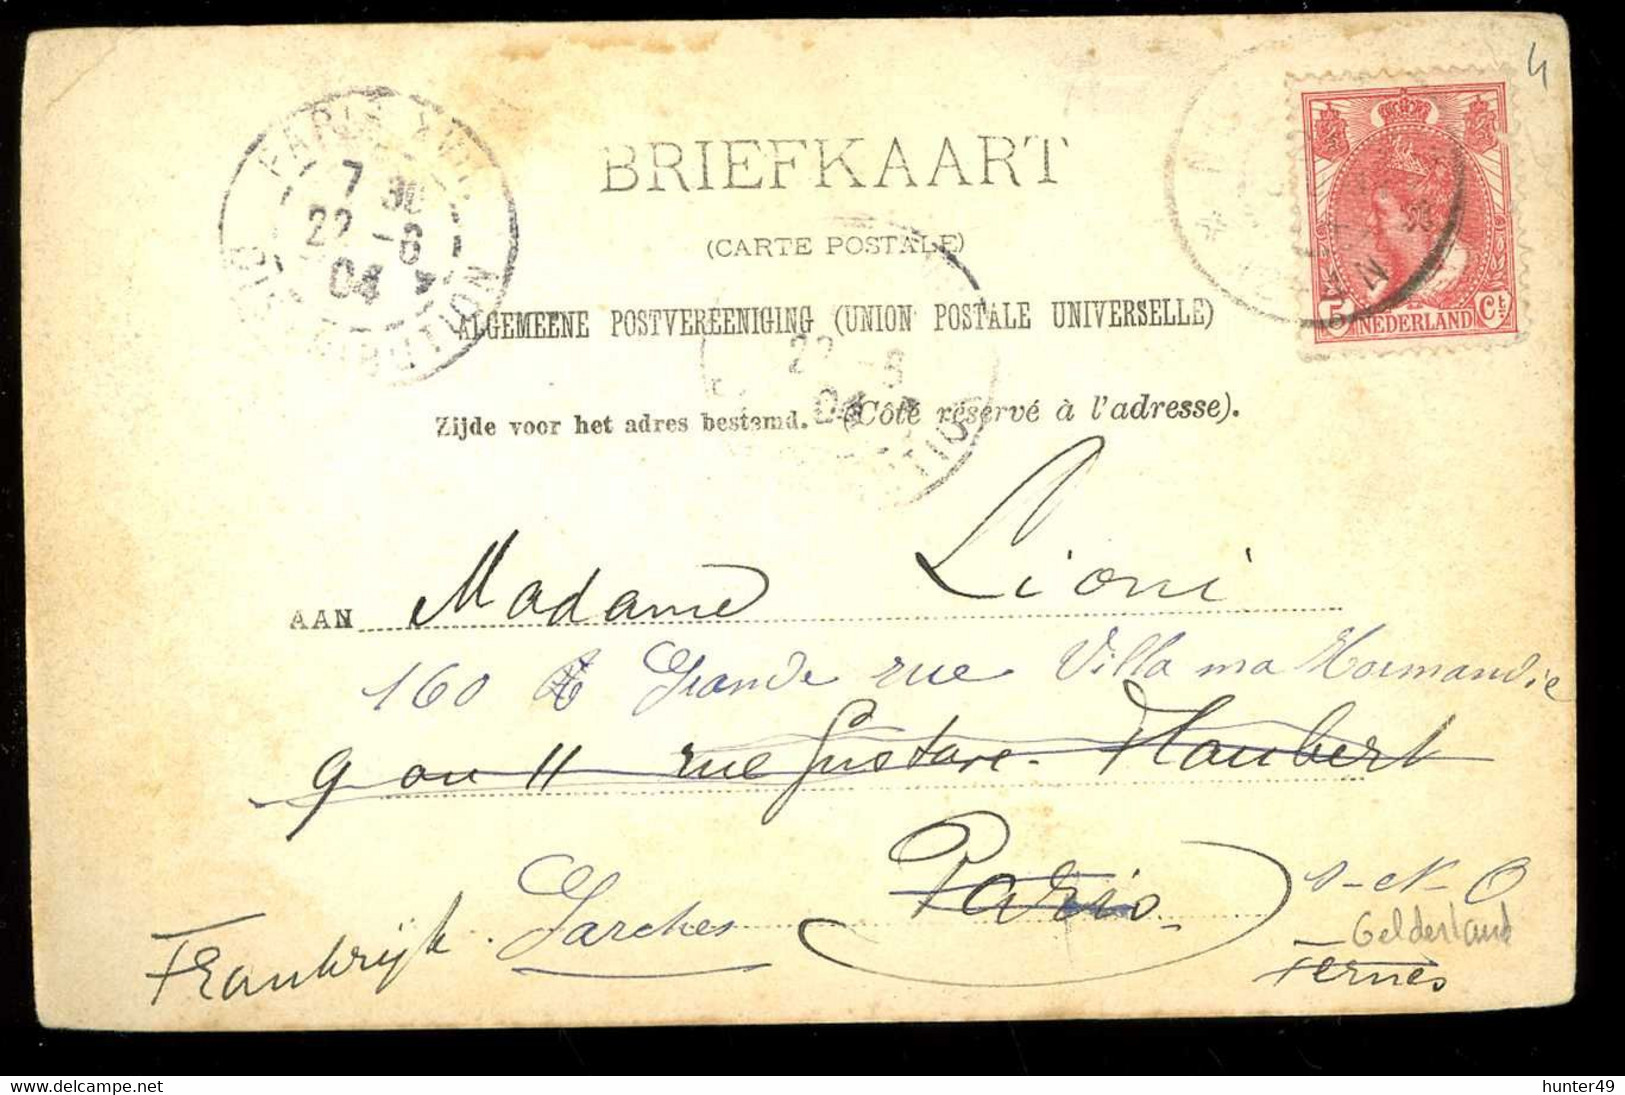 4
PARIS XVII
7 30
22 -6
04
DISTRIBUTION
BRIEFKAART
(CARTE POSTALE)
ALGEMEENE POSTVEREENIGING (UNION POSTALE UNIVERSELLE)
Zijde voor het adres bestemd. (Côté réservé à l'adresse).
22 -6
04
5 NEDERLAND Ct.
AAN Madame Lioni
160 Grande rue Villa ma Normandie
9 ou 11 rue Gustave Flaubert
Paris
Frankrijk Garches S-et-O
Gelderland
Ternes
delcampe.net
hunter49